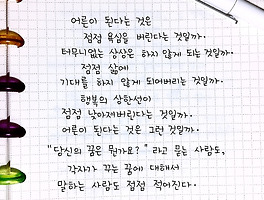 어른이 된다는 것은
점점 욕심을 버린다는 것일까.
터무니없는 상상은 하지 않게 되는 것일까.
점점 삶에
기대를 하지 않게 되어버리는 것일까.
행복의 상한선이
점점 낮아져버린다는 것일까.
어른이 된다는 것은 그런 것일까.
"당신의 꿈은 뭔가요?" 라고 묻는 사람도,
각자가 꾸는 꿈에 대해서
말하는 사람도 점점 적어진다.